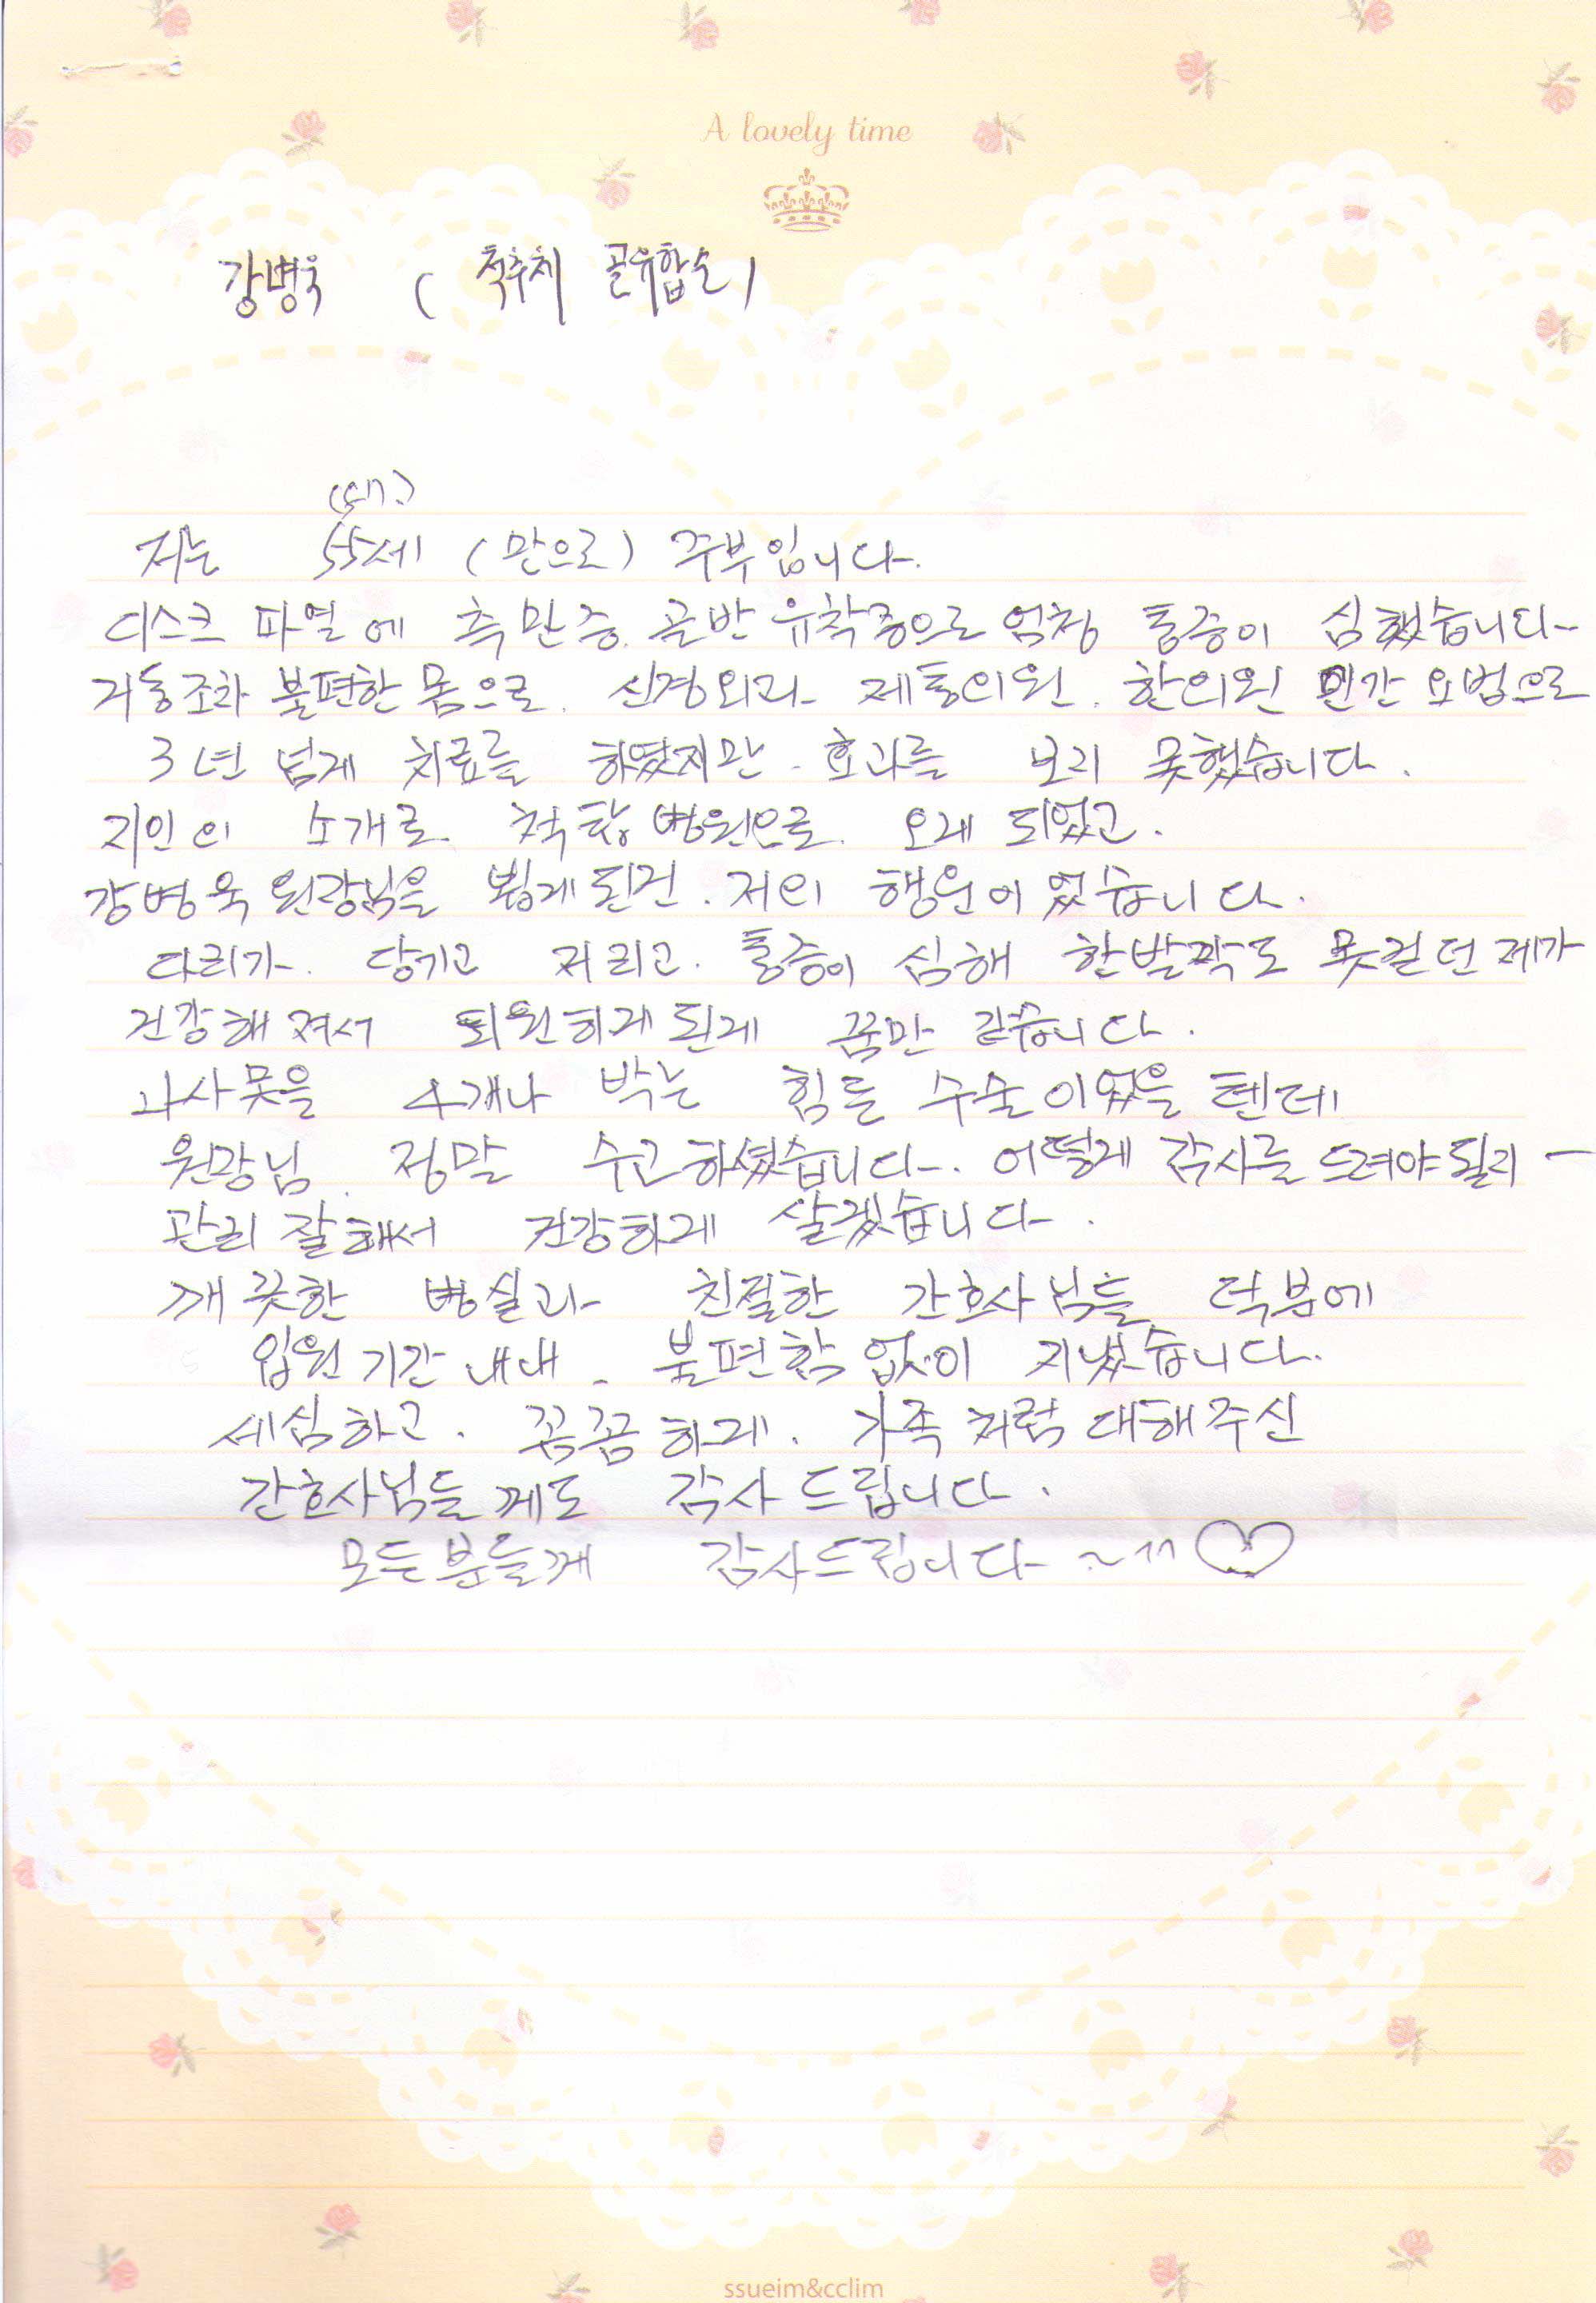 A lovely time
강병욱 ( 척추체 골유합술 )
55세 (만으로) 주부입니다.
저는
디스크 파열에 측만증. 골반 유착증으로 엄청 통증이 심했습니다
거동조차 불편한 몸으로. 신경외과 제통의원. 한의원 민간 요법으로
3년 넘게 치료를 하였지만. 효과를 보지 못했습니다.
지인의 소개로. 척탑병원으로. 오게 되었고.
강병욱 원장님을 뵙게된건. 저의 행운이었습니다.
다리가. 당기고 저리고. 통증이 심해 한발짝도 못걷던 제가
건강해져서 퇴원하게된게 꿈만 같습니다.
나사못을 4개나 박는 힘든 수술이었을 텐데
원장님. 정말 수고하셨습니다. 어떻게 감사를 드려야될지 ㅡ
관리 잘해서 건강하게 살겠습니다.
깨끗한 병실과 친절한 간호사님들 덕분에
입원기간내내. 불편함없이 지냈습니다.
세심하고. 꼼꼼하게. 가족처럼 대해주신
간호사님들께도 감사드립니다.
모든분들께 감사드립니다 ~^^♡
ssueim&cclim